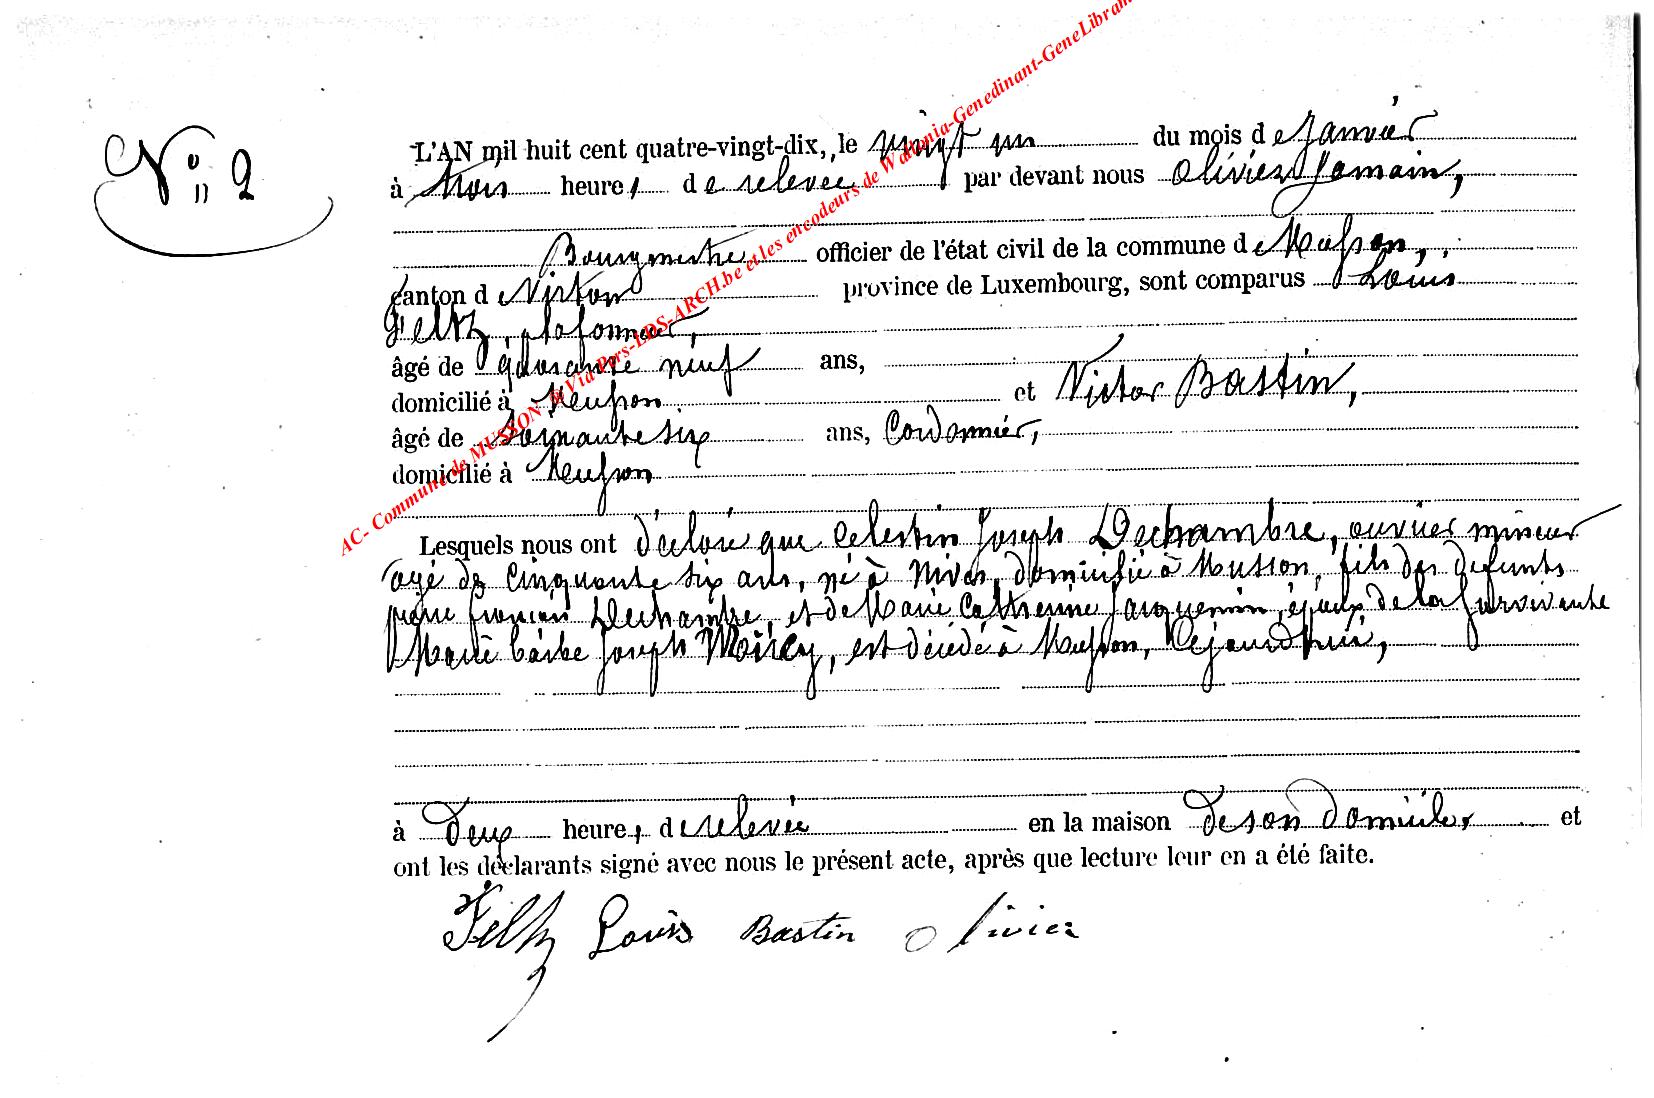 N° 2
L'AN mil huit cent quatre-vingt-dix, le vingt un du mois de Janvier
à trois heures de relevée par devant nous Olivier Jomain,
Bourgmestre officier de l'état civil de la commune de Musson,
canton de Virton province de Luxembourg, sont comparus Louis
Feltz, plafonneur,
âgé de quarante neuf ans,
domicilié à Musson et Victor Bastin,
âgé de soixante six ans, Cordonnier,
domicilié à Musson
Lesquels nous ont déclaré que Celestin Joseph Dechambre, ouvrier mineur
agé de cinquante six ans, né à domicilié à Musson, fils des defunts
Dechambre, et de Marie Catherine Jacquemin, époux de la survivante
Marie Barbe Joseph est décédé à Musson, cejourd'hui,
à deux heures de relevée en la maison de son domicile, et
ont les déclarants signé avec nous le présent acte, après que lecture leur en a été faite.
Feltz Louis Bastin Olivier
AC- Commune de MUSSON @ Via Pers-LDS-ARCH.be et les encodeurs de Wallonia-Genedinant-GeneLibram